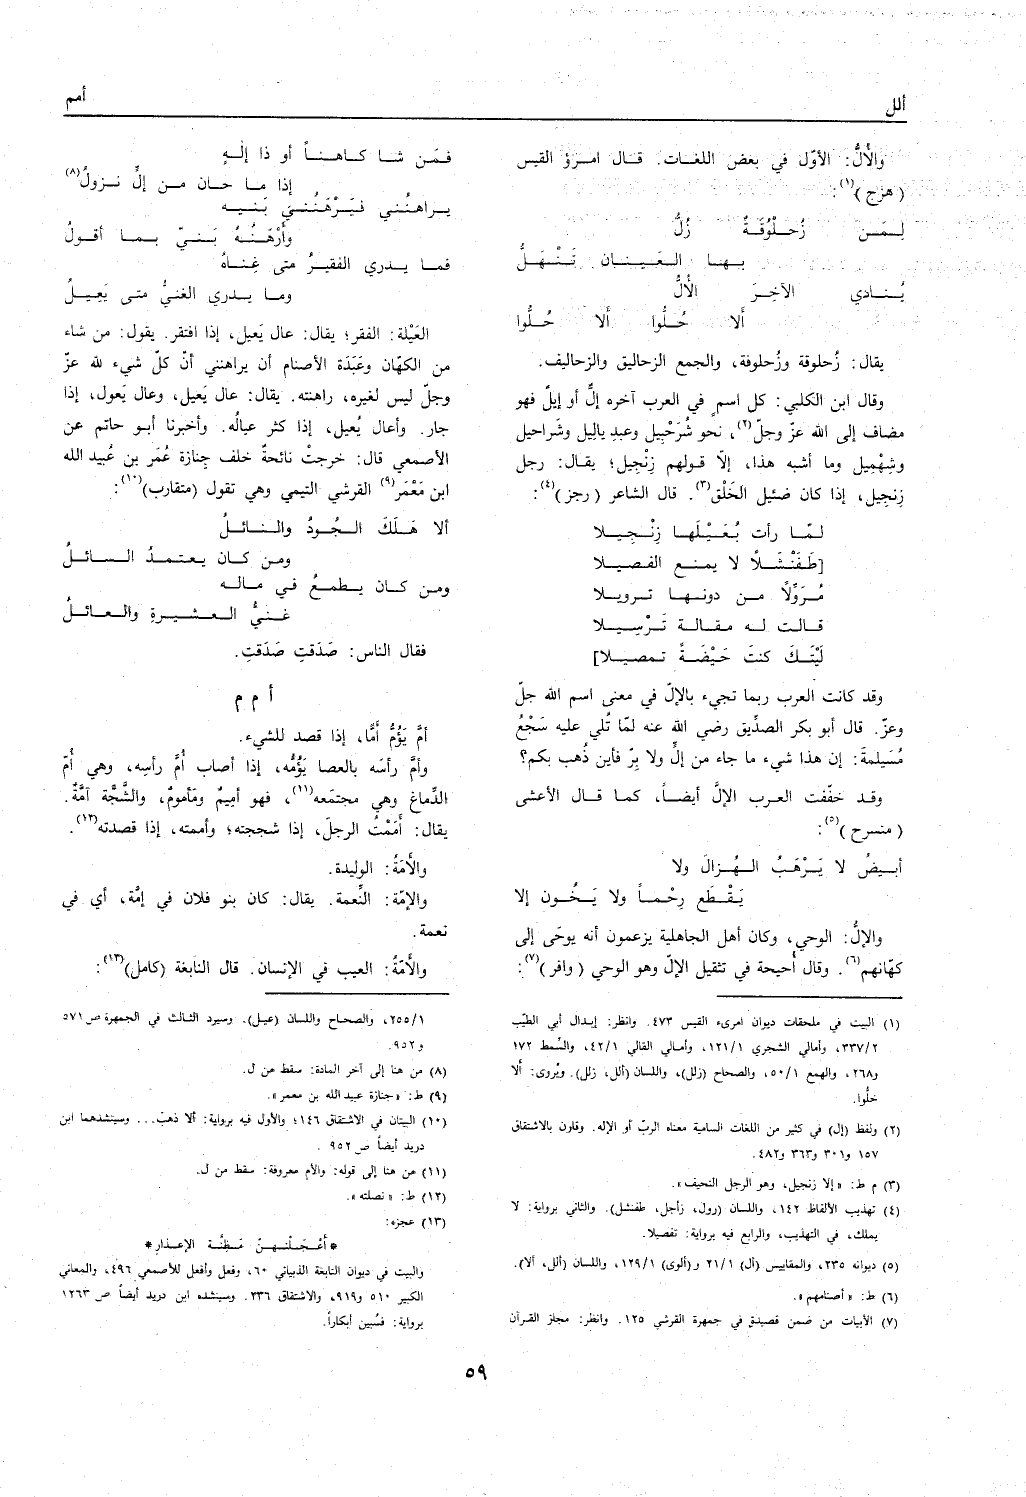 ألل
أمم
والأُلُّ: الأوّل في بعض اللغات. قال امرؤ القيس
(هزج)(١):
لِـمَـن زُحـلُوقَـةٌ زُلُّ
بـهـا الـعَـيـنـان تَـنْـهَـلُّ
يُـنـادي الآخِـرَ الأُلُّ
ألا حُـلُّوا ألا حُـلُّوا
يقال: زُحلوقة وزُحلوفة، والجمع الزحاليق والزحاليف.
وقال ابن الكلبي: كل اسم في العرب آخره إلٌّ أو إيلٌ فهو
مضاف إلى الله عزّ وجلّ(٢)، نحو شُرَحْبِيل وعبد ياليل وشَراحيل
وشِهْمِيل وما أشبه هذا، إلّا قولهم زِنْجيل؛ يقال: رجل
زِنجيل، إذا كان ضئيل الخَلْق(٣). قال الشاعر (رجز)(٤):
لـمّـا رأت بُـعَـيْـلَـهـا زِنْـجـيـلا
[طَفَنْشَـلًا لا يمنـع الفصيـلا
مُـرَوِّلًا مـن دونـهـا تـرويـلا
قـالـت لـه مـقـالـة تَـرْسِـيـلا
لَيْتَـكَ كنتَ حَيْضَـةً تـمصيـلا]
وقد كانت العرب ربما تجيء بالإلّ في معنى اسم الله جلّ
وعزّ. قال أبو بكر الصدّيق رضي الله عنه لمّا تُلي عليه سَجْعُ
مُسَيلمةَ: إن هذا شيء ما جاء من إلٍّ ولا بِرّ فأين ذُهب بكم؟
وقـد خفّفت العـرب الإلّ أيضـاً، كمـا قـال الأعشى
(منسرح)(٥):
أبـيـضُ لا يَـرْهَـبُ الـهُـزالَ ولا
يَـقْـطَـع رِحْـمـاً ولا يَـخُـون إلا
والإلُّ: الوحي، وكان أهل الجاهلية يزعمون أنه يوحَى إلى
كهّانهم(٦). وقال أُحيحة في تثقيل الإلّ وهو الوحي (وافر)(٧):
(١) البيت في ملحقات ديوان امرىء القيس ٤٧٣. وانظر: إبدال أبي الطيّب
٣٣٧/٢، وأمالي الشجري ١٢١/١، وأمالي القالي ٤٢/١، والسِّمط ١٧٢
و٢٦٨، والهمع ٥٠/١، والصحاح (زلل)، واللسان (ألل، زلل). ويُروى: ألا
خلُّوا.
(٢) ولفظ (إل) في كثير من اللغات السامية معناه الربّ أو الإله. وقارن بالاشتقاق
١٥٧ و٣٠١ و٣٦٣ و٤٨٢.
(٣) م ط: «إلا زنجيل، وهو الرجل النحيف».
(٤) تهذيب الألفاظ ١٤٢، واللسان (رول، زأجل، طفنشل). والثاني برواية: لا
يملك، في التهذيب، والرابع فيه برواية: تفصيلا.
(٥) ديوانه ٢٣٥، والمقاييس (أل) ٢١/١ و(ألوى) ١٢٩/١، واللسان (ألل، ألا).
(٦) ط: «أصنامهم».
(٧) الأبيات من ضمن قصيدة في جمهرة القرشي ١٢٥. وانظر: مجاز القرآن
فـمَـن شـا كـاهـنـاً أو ذا إلـٰهٍ
إذا مـا حـان مـن إلٍّ نـزولُ(٨)
يـراهـنُـنـي فـيَـرْهَـنُـنـي بَـنـيـه
وأَرْهَـنُـهُ بَـنـيّ بـمـا أقـولُ
فمـا يـدري الفقيـرُ متى غِنـاهُ
ومـا يـدري الغنيُّ متـى يَعِيـلُ
العَيْلة: الفقر؛ يقال: عال يَعيل، إذا افتقر. يقول: من شاء
من الكهّان وعَبَدَة الأصنام أن يراهنني أنّ كلّ شيء لله عزّ
وجلّ ليس لغيره، راهنته. يقال: عال يَعيل، وعال يَعول، إذا
جار. وأعال يُعيل، إذا كثر عيالُه. وأخبرنا أبـو حاتم عن
الأصمعي قال: خرجتْ نائحةٌ خلف جِنازة عُمَر بن عُبيد الله
ابن مَعْمَر(٩) القرشي التيمي وهي تقول (متقارب)(١٠):
ألا هَـلَكَ الـجُـودُ والـنـائـلُ
ومـن كـان يـعـتـمـدُ الـسـائـلُ
ومـن كـان يـطـمـعُ فـي مـالـه
غـنـيُّ الـعـشـيـرةِ والـعـائـلُ
فقال الناس: صَدَقتِ صَدَقتِ.
أ م م
أمَّ يَؤُمُّ أَمًّا، إذا قصد للشيء.
وأمَّ رأسَه بالعصا يَؤُمُّه، إذا أصاب أُمَّ رأسِه، وهي أُمّ
الدِّماغ وهي مجتمَعه(١١)، فهو أميمٌ ومَأمومٌ، والشَّجَّة آمَّةٌ.
يقال: أَمَمْتُ الرجلَ، إذا شججته؛ وأممته، إذا قصدته(١٢).
والأَمَةُ: الوليدة.
والإمّة: النِّعمة. يقال: كان بنو فلان في إمّة، أي في
نعمة.
والأَمَةُ: العيب في الإنسان. قال النابغة (كامل)(١٣):
٢٥٥/١، والصحاح واللسان (عيل). وسيرد الثالث في الجمهرة ص ٥٧١
و٩٥٢.
(٨) من هنا إلى آخر المادة: سقط من ل.
(٩) ط: «جنازة عبد الله بن معمر».
(١٠) البيتان في الاشتقاق ١٤٦؛ والأول فيه برواية: ألا ذهبَ... وسينشدهما ابن
دريد أيضاً ص ٩٥٢ .
(١١) من هنا إلى قوله: والأم معروفة: سقط من ل.
(١٢) ط: «نصلته».
(١٣) عجزه:
* أعْـجَـلْـنـهـنّ مَـظِـنَّـة الإعـذار *
والبيت في ديوان النابغة الذبياني ٦٠، وفعل وأفعل للأصمعي ٤٩٦، والمعاني
الكبير ٥١٠ و٩١٩، والاشتقاق ٣٣٦. وسينشده ابن دريد أيضاً ص ١٢٦٣
برواية: فسُبين أبكاراً.
٥٩